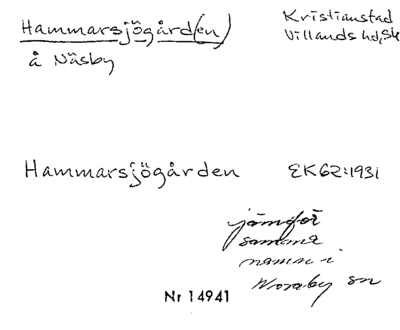 Hammarsjögård(en)
Kristianstad
Villands hd, Sk
å Näsby
Hammarsjögården
EK62:1931
jämför
samma
namn i
sn
Nr 14941